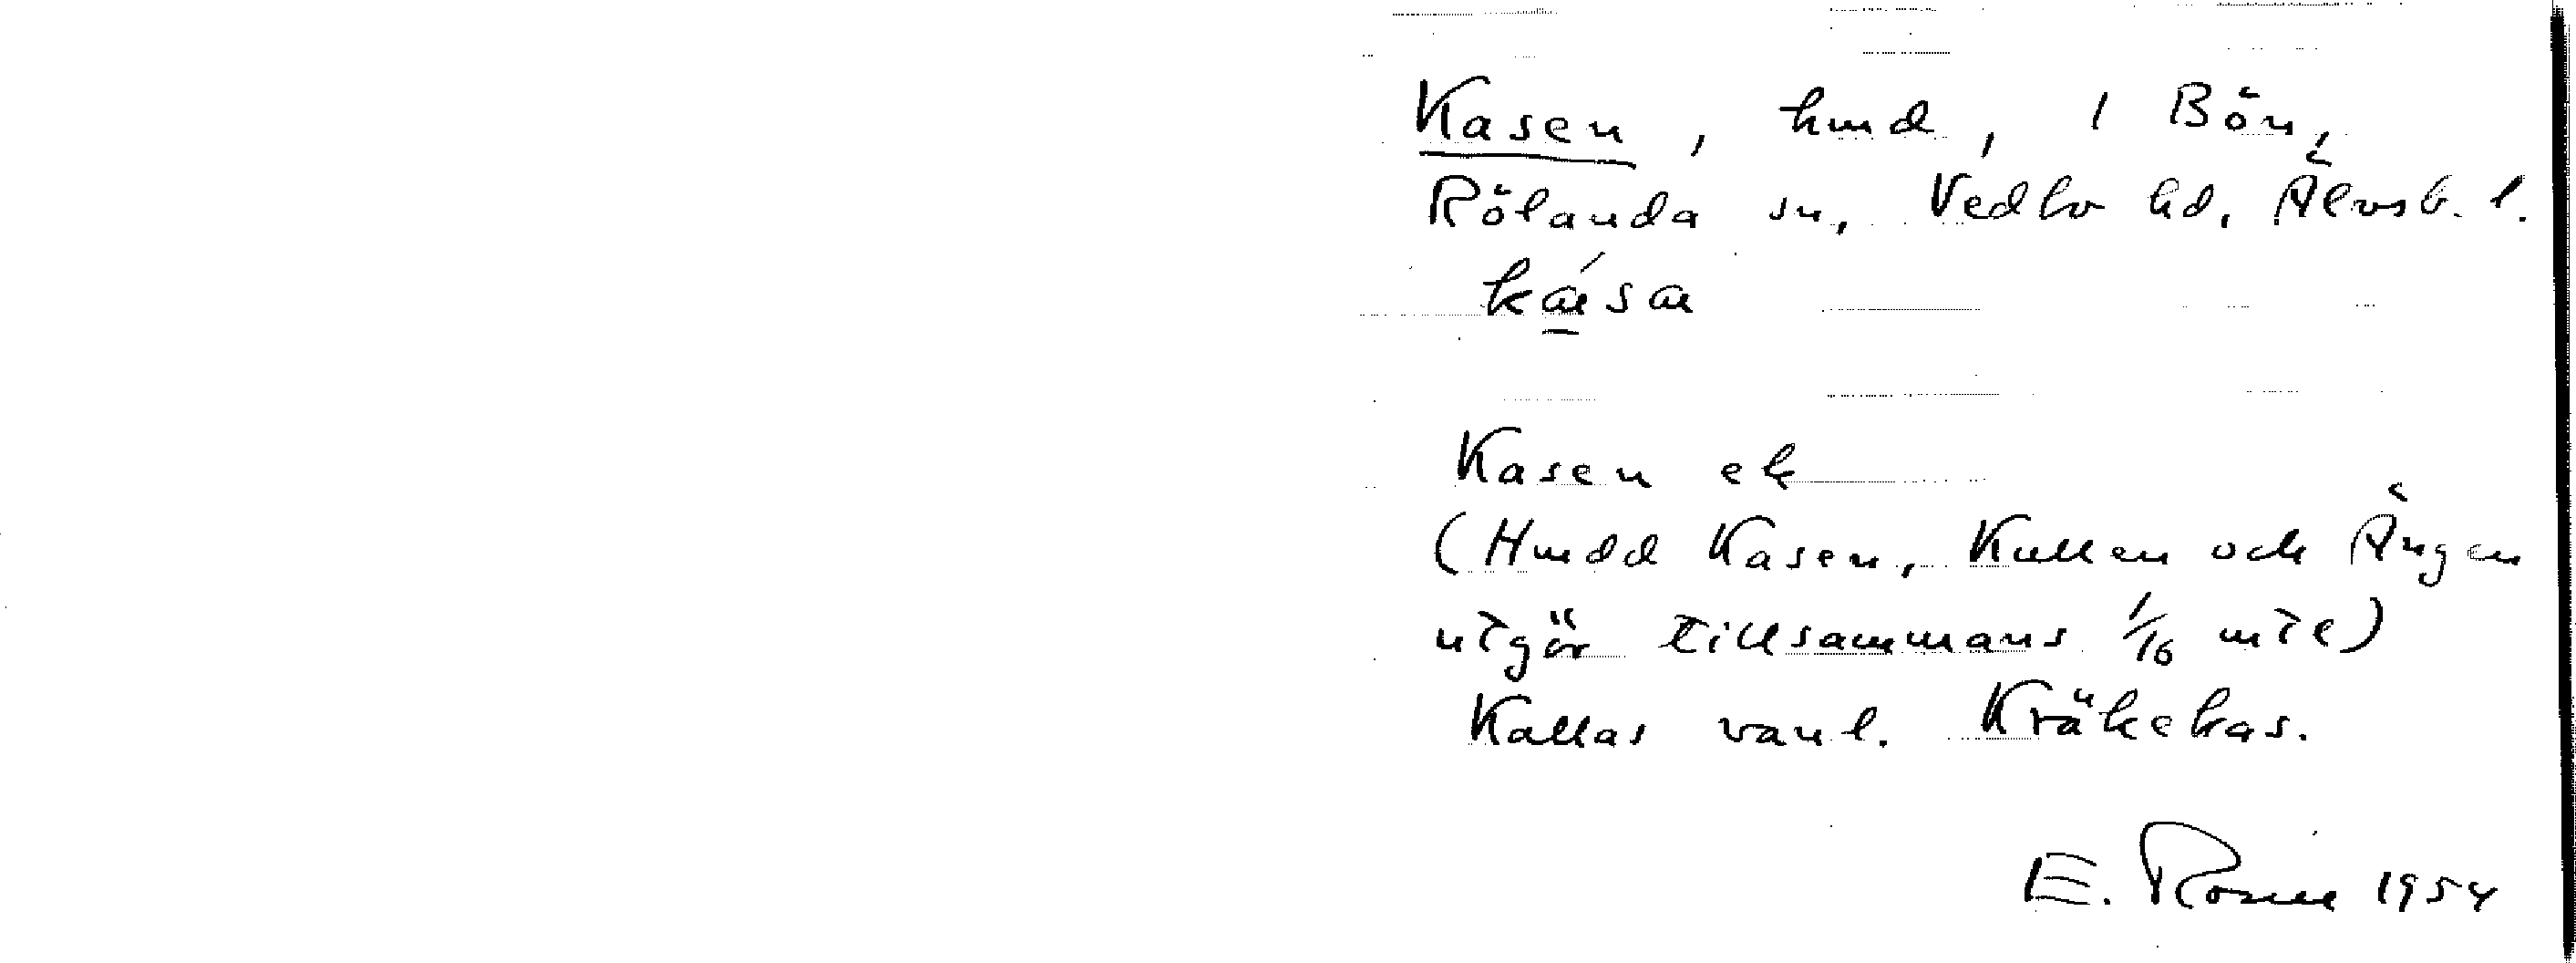 Kasen, hmd, 1 Bön,
Rölanda sn, Vedbo hd, Älvsb. l.
Kasen ek
(Hmdd Kasen, Kullen och Ängen
utgör tillsammans 1/16 mtl)
Kallas vanl. Kråkekas.
E. 1954